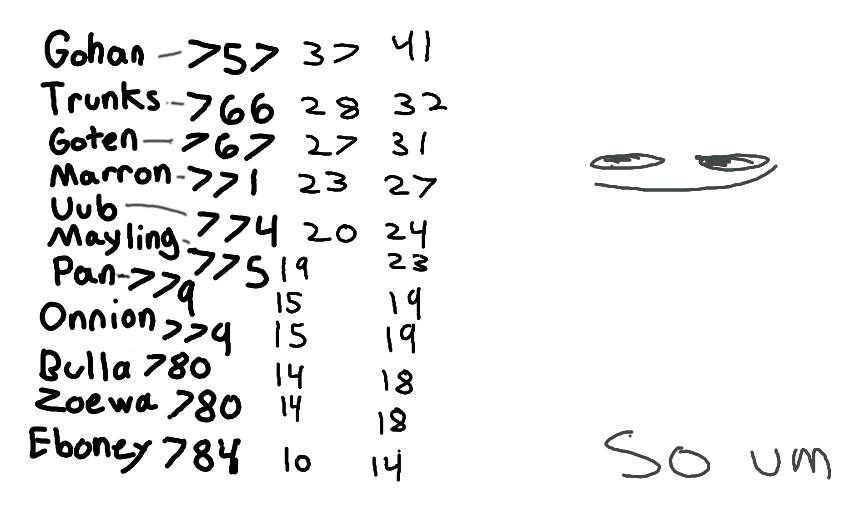 Gohan - 757 37 41
Trunks - 766 28 32
Goten - 767 27 31
Marron - 771 23 27
Uub - 774 20 24
Mayling - 775 19 23
Pan - 779 15 19
Onnion 779 15 19
Bulla 780 14 18
Zoewa 780 14 18
Eboney 784 10 14
So um